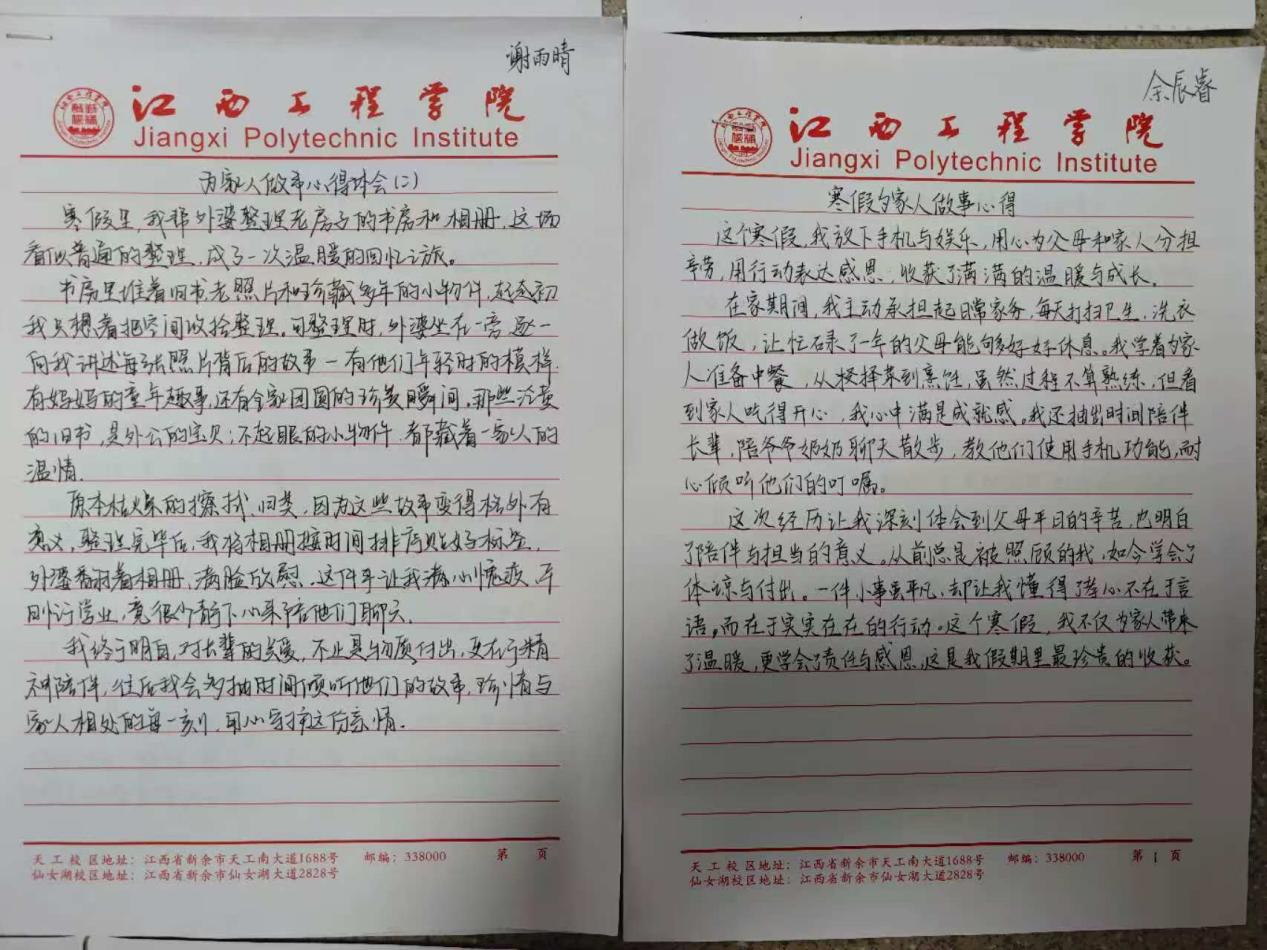 谢雨晴
江西工程学院
Jiangxi Polytechnic Institute
为家人做事心得体会(二)
寒假里,我帮外婆整理老房子的书房和相册,这场
看似普通的整理,成了一次温暖的回忆之旅。
书房里堆着旧书,老照片和珍藏多年的小物件,起初
我只想着把空间收拾整理。可整理时,外婆坐在一旁,逐一
向我讲述每张照片背后的故事一有他们年轻时的模样,
有妈妈的童年趣事,还有全家团圆的珍贵瞬间,那些泛黄
的旧书,是外公的宝贝;不起眼的小物件,都藏着一家人的
温情.
原本枯燥的擦拭、归类,因为这些故事变得格外有
意义,整理完毕后,我将相册按时间排序贴好标签,
外婆翻着相册,满脸欣慰,这件事让我满心愧疚,平
时忙于学业,竟很少静下心来陪他们聊天.
我终于明白,对长辈的关爱,不止是物质付出,更在于精
神陪伴,往后我会多抽时间倾听他们的故事,珍惜与
家人相处的每一刻,用心守护这份亲情.
天工校区地址:江西省新余市天工南大道1688号 邮编:338000 第 页
仙女湖校区地址:江西省新余市仙女湖大道2828号
余辰睿
江西工程学院
Jiangxi Polytechnic Institute
寒假为家人做事心得
这个寒假,我放下手机与娱乐,用心为父母和家人分担
辛劳,用行动表达感恩,收获了满满的温暖与成长。
在家期间,我主动承担起日常家务,每天打扫卫生、洗衣
做饭,让忙碌了一年的父母能够好好休息。我学着为家
人准备中餐,从择菜到烹饪,虽然过程不算熟练,但看
到家人吃得开心,我心中满是成就感。我还抽出时间陪伴
长辈,陪爷爷奶奶聊天散步,教他们使用手机功能,耐
心倾听他们的叮嘱。
这次经历让我深刻体会到父母平日的辛苦,也明白
了陪伴与担当的意义。从前总是被照顾的我,如今学会了
体谅与付出。一件小事虽平凡,却让我懂得了孝心不在于言
语,而在于实实在在的行动。这个寒假,我不仅为家人带来
了温暖,更学会了责任与感恩,这是我假期里最珍贵的收获。
天工校区地址:江西省新余市天工南大道1688号 邮编:338000 第1页
仙女湖校区地址:江西省新余市仙女湖大道2828号